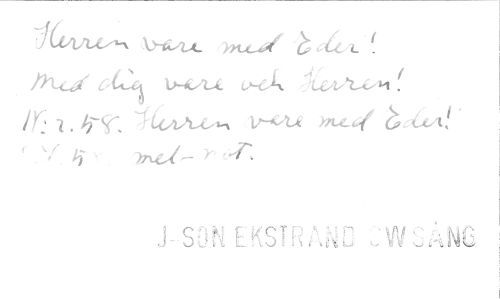 Herren vare med Eder!
Med dig vare och Herren!
N:r. 58. Herren vare med Eder!
mel-not.
J-SON EKSTRAND CW SÅNG